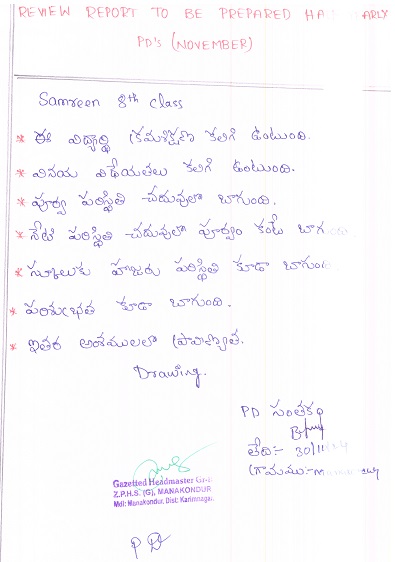 REVIEW REPORT TO BE PREPARED HA ARLY
PD's (NOVEMBER)
Samreen 8th class
* ఈ విద్యార్థి క్రమశిక్షణ కలిగి ఉంటుంది.
* వినయ విధేయతలు కలిగి ఉంటుంది.
* పూర్వ పరిస్థితి చదువులో బాగుంది.
* నేటి పరిస్థితి చదువులో పూర్వం కంటే బాగ
* స్కూలుకు హాజరు పరిస్థితి కూడా బాగుంది
* పరిశుభ్రత కూడా బాగుంది.
* ఇతర అంశములలో ప్రావీణ్యత.
Drawing.
PD సంతకం
తేది:- 30/11
గ్రామము:-
Gazetted Headmaster Gr-II
Z.P.H.S. (G), MANAKONDUR
Mdl: Manakondur, Dist: Karimnagar.
PD